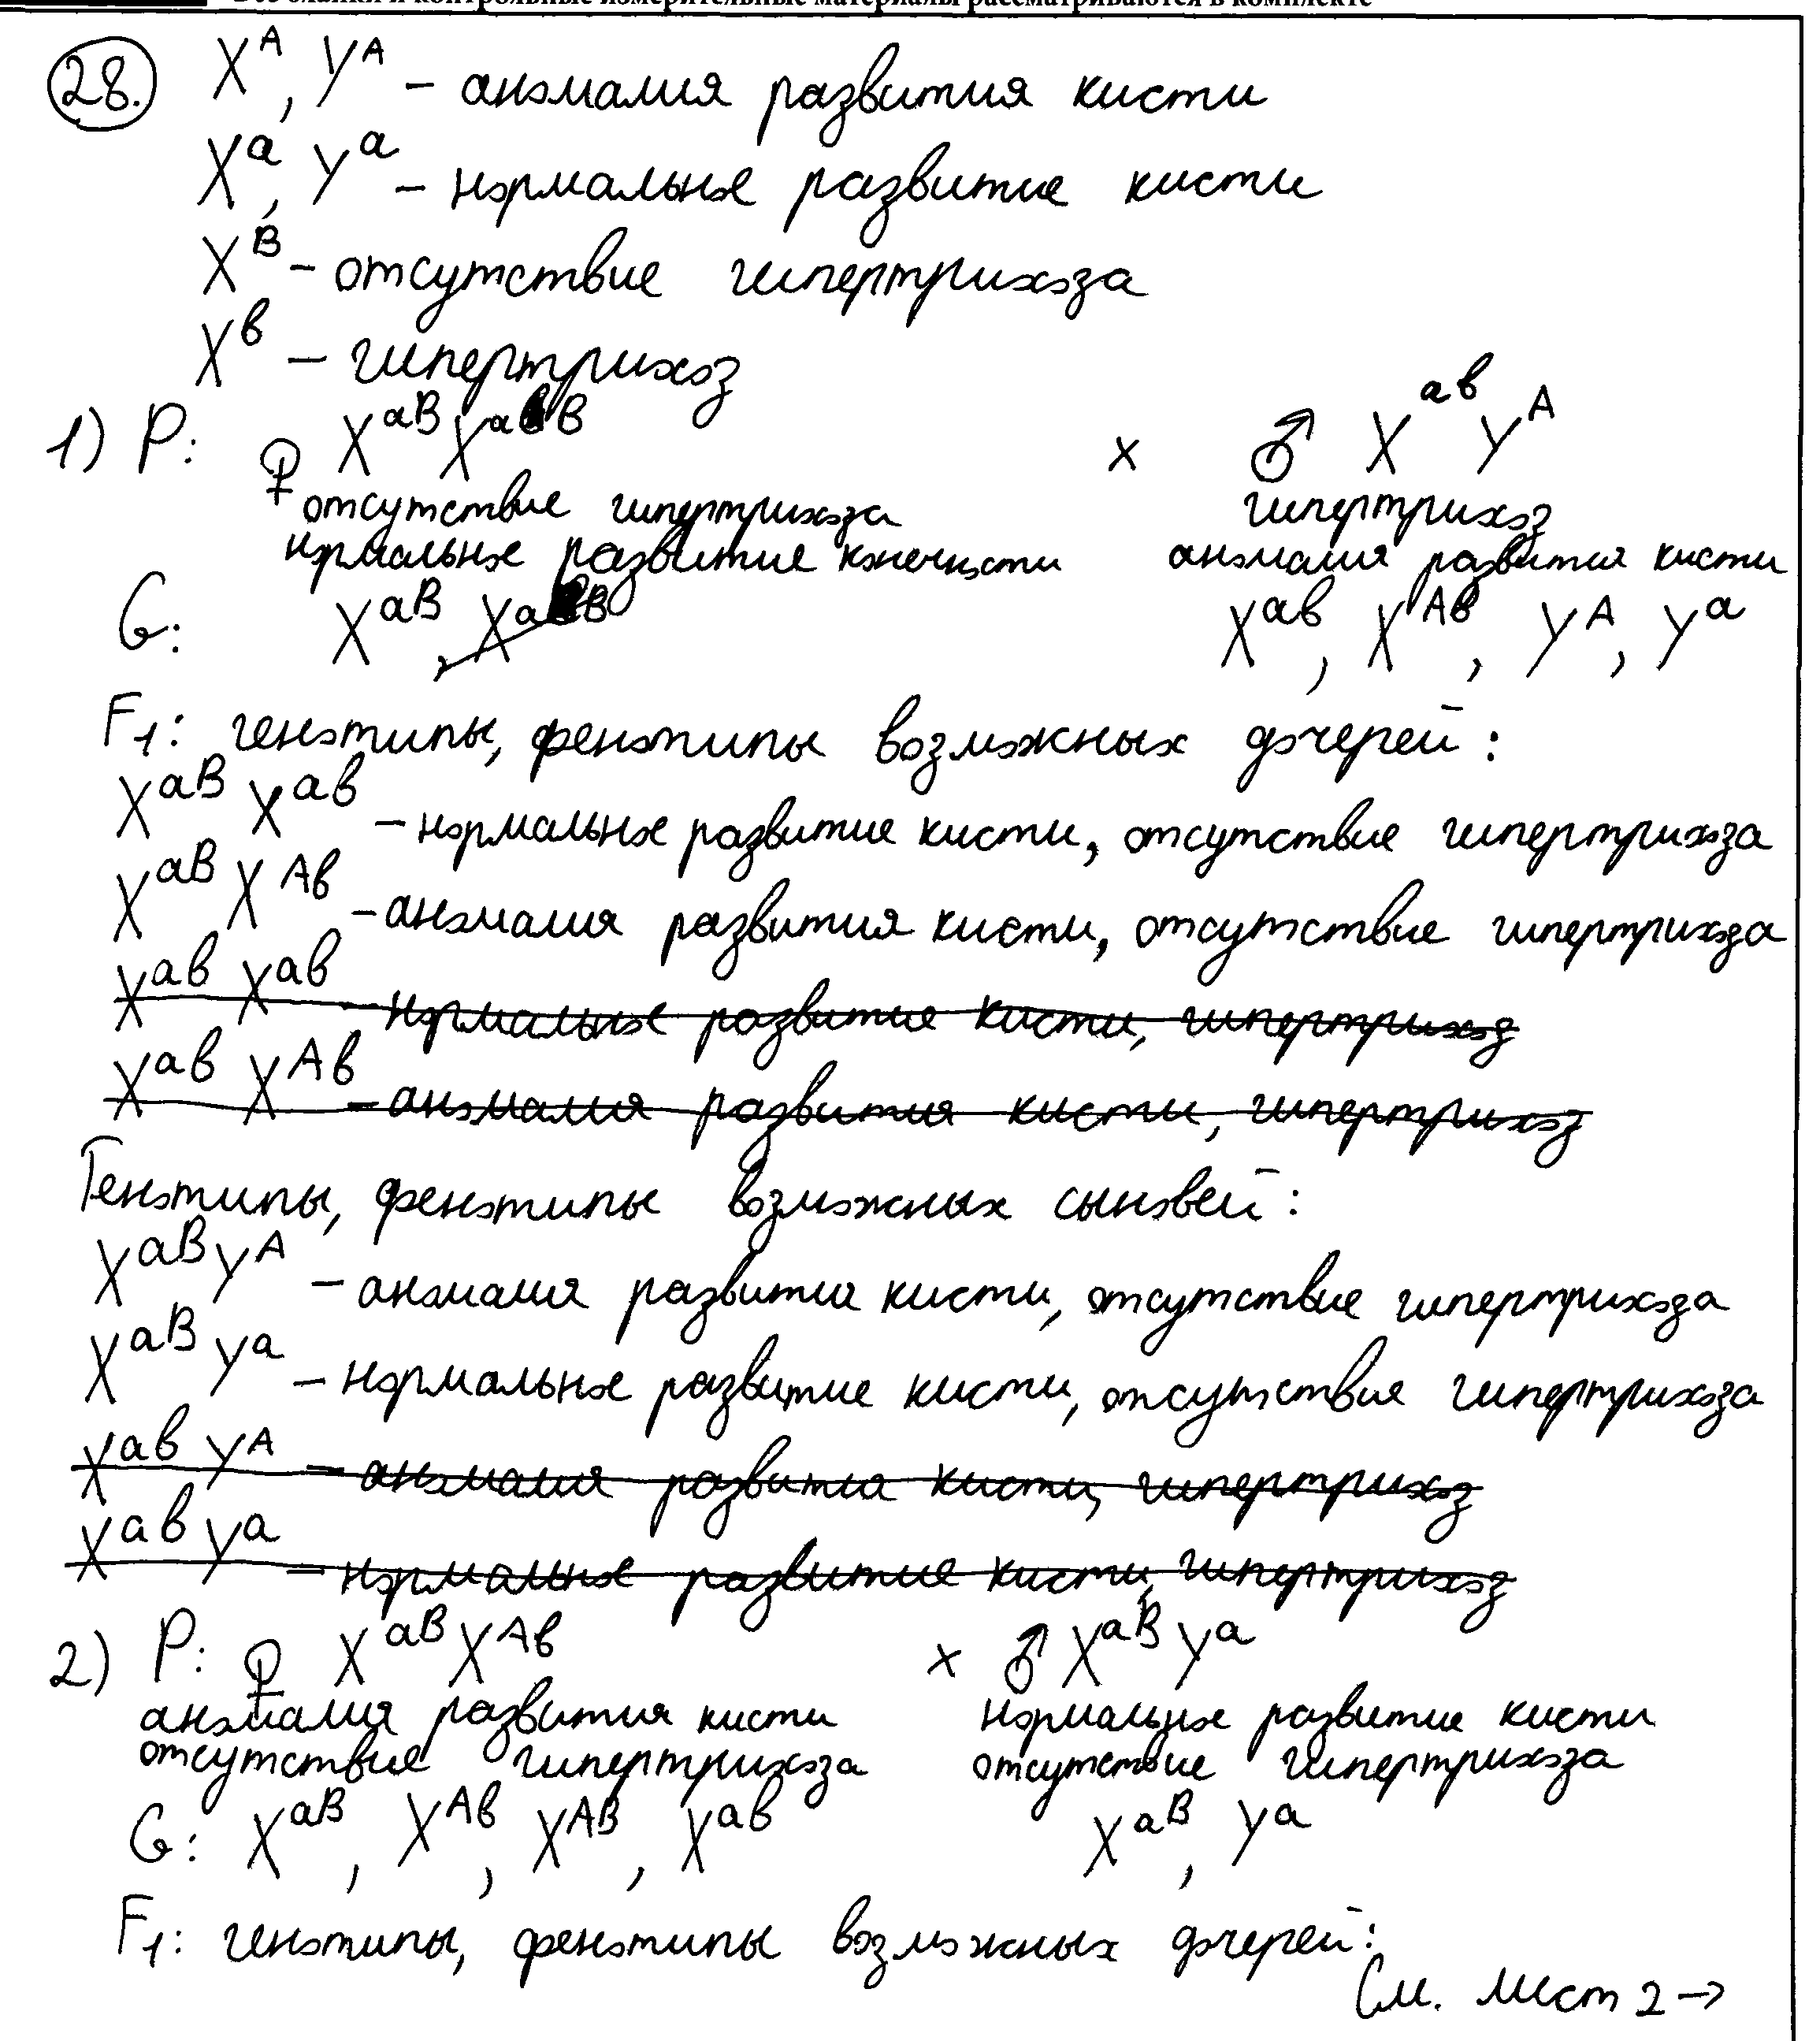 Все бланки и контрольные измерительные материалы рассматриваются в комплекте
28. X^A, Y^A – аномалия развития кисти
X^a, Y^a – нормальное развитие кисти
X^B – отсутствие гипертрихоза
X^в – гипертрихоз
1) P: ♀ X^aB X^aB × ♂ X^aв Y^A
отсутствие гипертрихоза гипертрихоз
нормальное развитие конечности аномалия развития кисти
G: X^aB, X^aB X^aв, X^Aв, Y^A, Y^a
F1: генотипы, фенотипы возможных дочерей:
X^aB X^aв – нормальное развитие кисти, отсутствие гипертрихоза
X^aB X^Aв – аномалия развития кисти, отсутствие гипертрихоза
X^aв X^aв – нормальное развитие кисти, гипертрихоз
X^aв X^Aв – аномалия развития кисти, гипертрихоз
Генотипы, фенотипы возможных сыновей:
X^aB Y^A – аномалия развития кисти, отсутствие гипертрихоза
X^aB Y^a – нормальное развитие кисти, отсутствие гипертрихоза
X^aв Y^A – аномалия развития кисти, гипертрихоз
X^aв Y^a – нормальное развитие кисти, гипертрихоз
2) P: ♀ X^aB X^Aв × ♂ X^aB Y^a
аномалия развития кисти нормальное развитие кисти
отсутствие гипертрихоза отсутствие гипертрихоза
G: X^aB, X^Aв, X^AB, X^aв X^aB, Y^a
F1: генотипы, фенотипы возможных дочерей:
См. лист 2 →